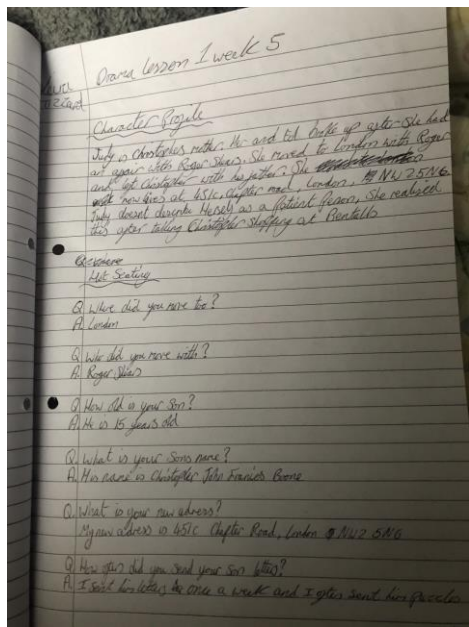 Drama lesson 1 week 5
Character Profile
Judy is Christophers mother. Her and Ed broke up after She had
an affair with Roger Shears. She moved to London with Roger
and left Christopher with his father. She
now lives at 451c, Chapter road, London, NW2 5NG
Judy doesnt describe Herself as a Patient Person, She realised
this after taking Christopher Shopping at Bentalls
Hot Seating
Q. Where did you move too?
A. London
Q. Who did you move with?
A. Roger Shears
Q. How old is your Son?
A. He is 15 years old
Q. What is your Sons name?
A. His name is Christopher John Francis Boone
Q. What is your new adress?
My new adress is 451c Chapter Road, London NW2 5NG
Q. How often did you send your Son letters?
A. I sent him letters once a week and I often sent him puzzles